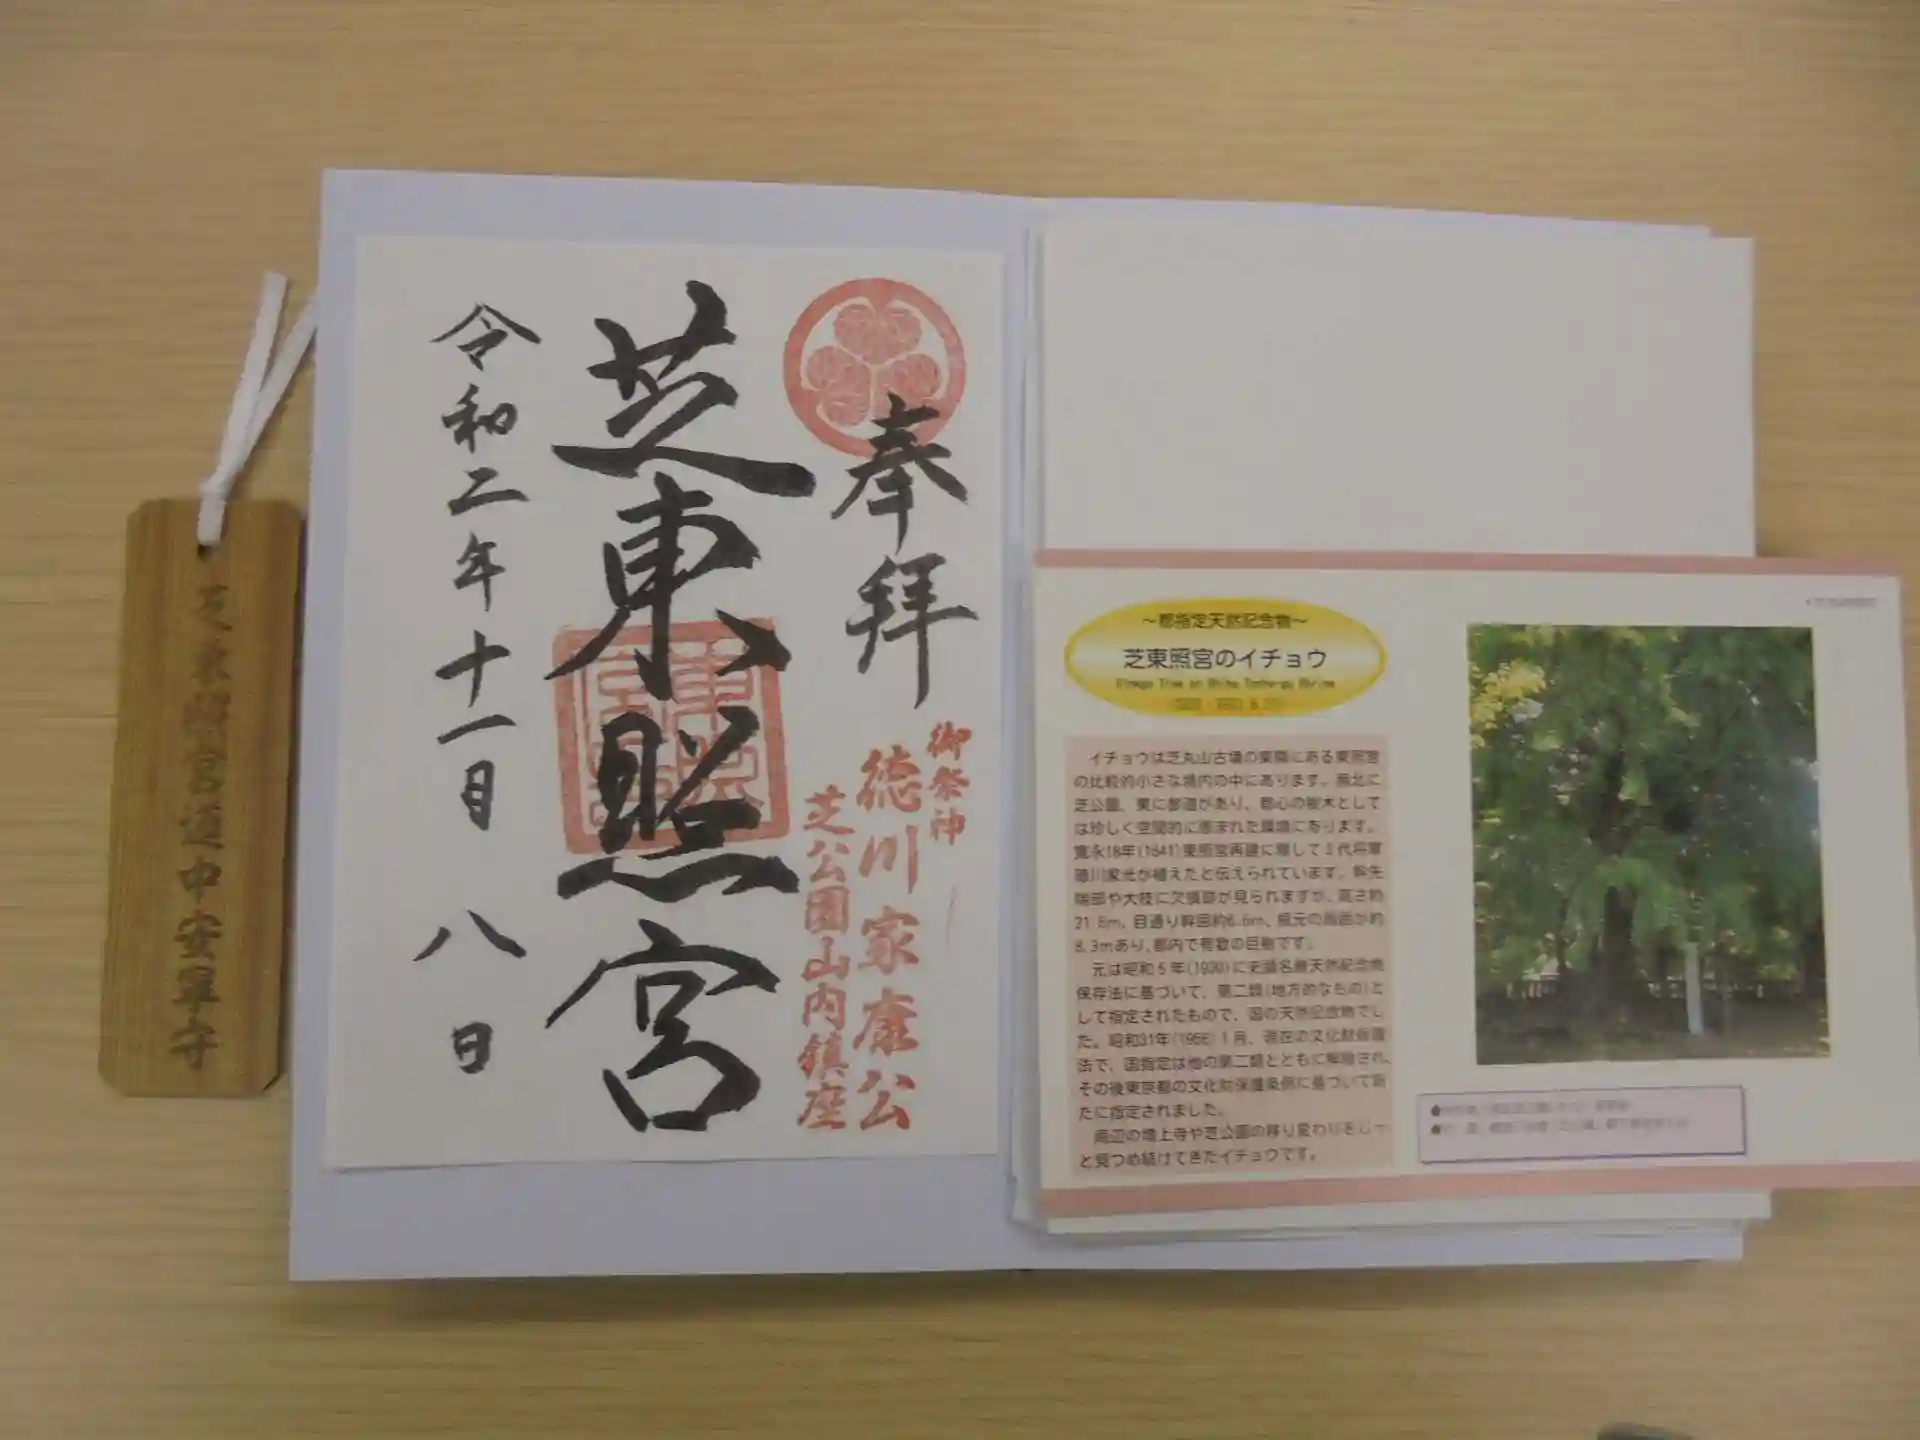 奉拝
御祭神
徳川家康公
芝公園山内鎮座
芝東照宮
令和二年十一月八日
芝東照宮道中安寧守
～都指定天然記念物～
芝東照宮のイチョウ
イチョウは芝丸山古墳の東隣にある東照宮
の比較的小さな境内の中にあります。南北に
芝公園、東に都道があり、都心の樹木として
は珍しく空間的に恵まれた環境にあります。
寛永18年(1641)東照宮再建に際して3代将軍
徳川家光が植えたと伝えられています。幹先
端部や大枝に欠損跡が見られますが、高さ約
21.5m、目通り幹囲約6.5m、根元の周囲が約
8.3mあり、都内で有数の巨樹です。
元は昭和5年(1930)に史蹟名勝天然紀念物
保存法に基づいて、第二類(地方的なもの)と
して指定されたもので、国の天然記念物でし
た。昭和31年(1956)1月、現在の文化財保護
法で、国指定は他の第二類とともに解除され、
その後東京都の文化財保護条例に基づいて新
たに指定されました。
周辺の増上寺や芝公園の移り変わりをじっ
と見つめ続けてきたイチョウです。